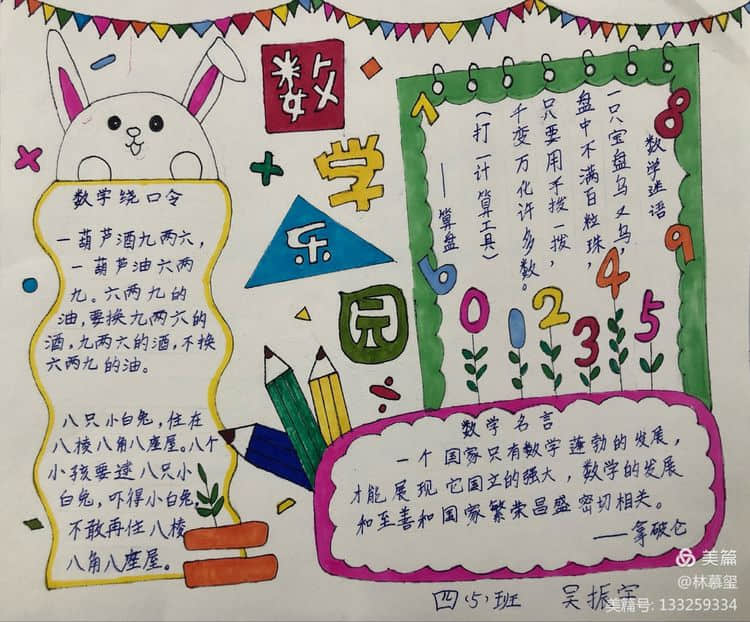 数
学
乐
园
数学绕口令
一葫芦酒九两六，
一葫芦油六两
九。六两九的
油,要换九两六的
酒,九两六的酒,不换
六两九的油。
八只小白兔,住在
八棱八角八座屋。八个
小孩要逮八只小
白兔,吓得小白兔,
不敢再住八棱
八角八座屋。
数学迷语
一只宝盘乌又乌,
盘中不满百粒珠,
只要用手拨一拨,
千变万化许多数。
(打一计算工具)
——算盘
7
8
9
6
0
1
2
3
4
5
数学名言
一个国家只有数学蓬勃的发展,
才能展现它国立的强大,数学的发展
和至善和国家繁荣昌盛密切相关。
——拿破仑
四(5)班 吴振宇
美篇
@林慕玺
美篇号: 133259334